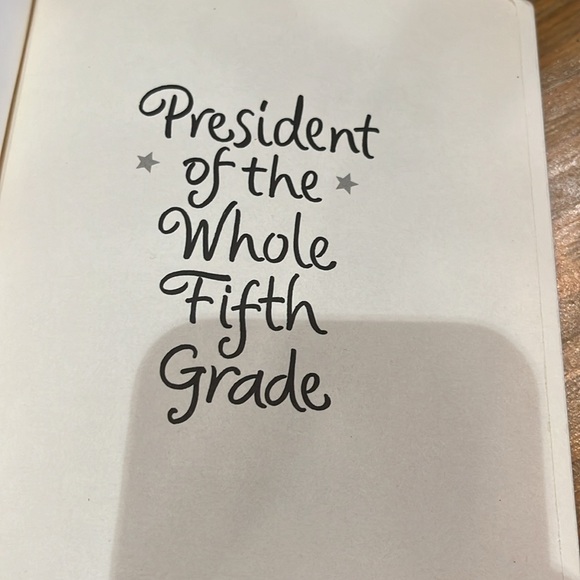 President
of the
Whole
Fifth
Grade